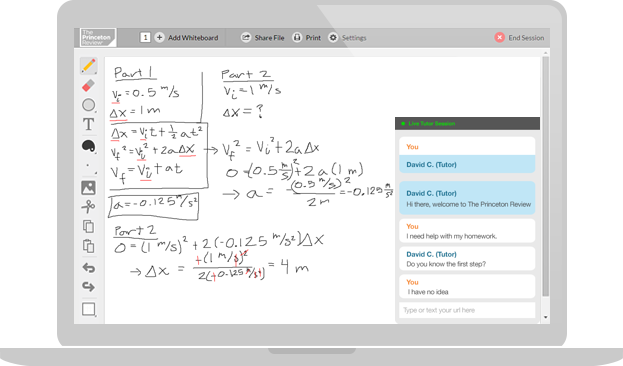 The
Princeton
Review
1 + Add Whiteboard Share File Print Settings End Session
Part 1
Vi = 0.5 m/s
Δx = 1 m
Δx = Vit + 1/2 at²
Vf² = Vi² + 2aΔx
Vf = Vi + at
a = -0.125 m/s²
Part 2
Vi = 1 m/s
Δx = ?
→ Vf² = Vi² + 2aΔx
0 = (0.5 m/s)² + 2a(1 m)
→ a = -(0.5 m/s)² / 2m = -0.125 m/s²
Part 2
0 = (1 m/s)² + 2(-0.125 m/s²)Δx
→ Δx = +(1 m/s)² / 2(+0.125 m/s²) = 4 m
T
Live Tutor Session
You
David C. (Tutor)
David C. (Tutor)
Hi there, welcome to The Princeton Review
You
I need help with my homework.
David C. (Tutor)
Do you know the first step?
You
I have no idea
Type or paste your url here